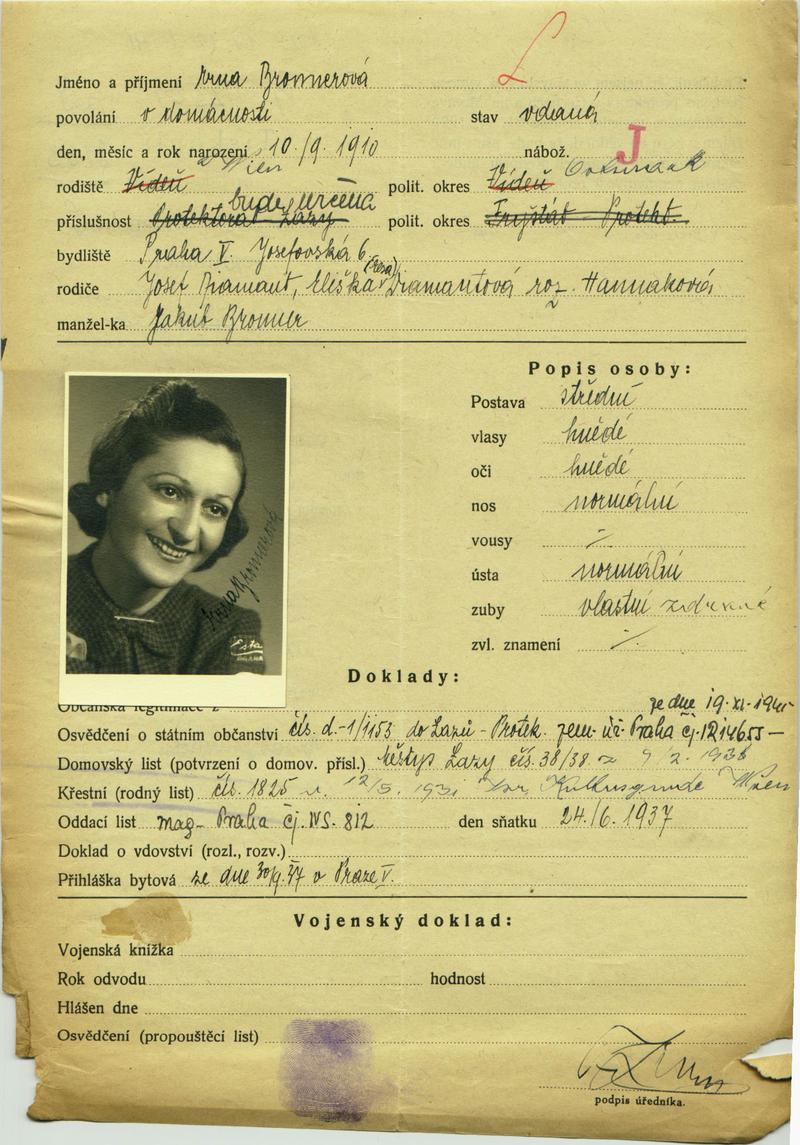 L
Jméno a příjmení Erna Bronnerová
povolání v domácnosti stav vdaná
den, měsíc a rok narození 10./9. 1910 nábož. J
rodiště Vídeň Wien polit. okres Vídeň
příslušnost Protektorát Lazy bude určena polit. okres Fryštát Protekt.
bydliště Praha V. Josefovská 6
rodiče Josef Diamant, Eliška Diamantová roz. Hannaková
manžel-ka Jakub Bronner
Popis osoby:
Postava střední
vlasy hnědé
oči hnědé
nos normální
vousy
ústa normální
zuby vlastní zdravé
zvl. znamení
Erna Bronnerová
Doklady:
Občanská legitimace z
ze dne 19. XI.
Osvědčení o státním občanství čís. d.-1/1153 do Lazů - Protek. zem. úř. Praha čj. 1214655 —
Domovský list (potvrzení o domov. přísl.) městys Lazy čís. 38/38 9/2. 1938
Křestní (rodný list) čís. 1825 12/5. 1931 Isr. Kultusgemde Wien
Oddací list mag. Praha čj. IVS. 812 den sňatku 24./6. 1937
Doklad o vdovství (rozl., rozv.)
Přihláška bytová ze dne 30/9. 37 v Praze V.
Vojenský doklad:
Vojenská knížka
Rok odvodu hodnost
Hlášen dne
Osvědčení (propouštěcí list)
podpis úředníka.